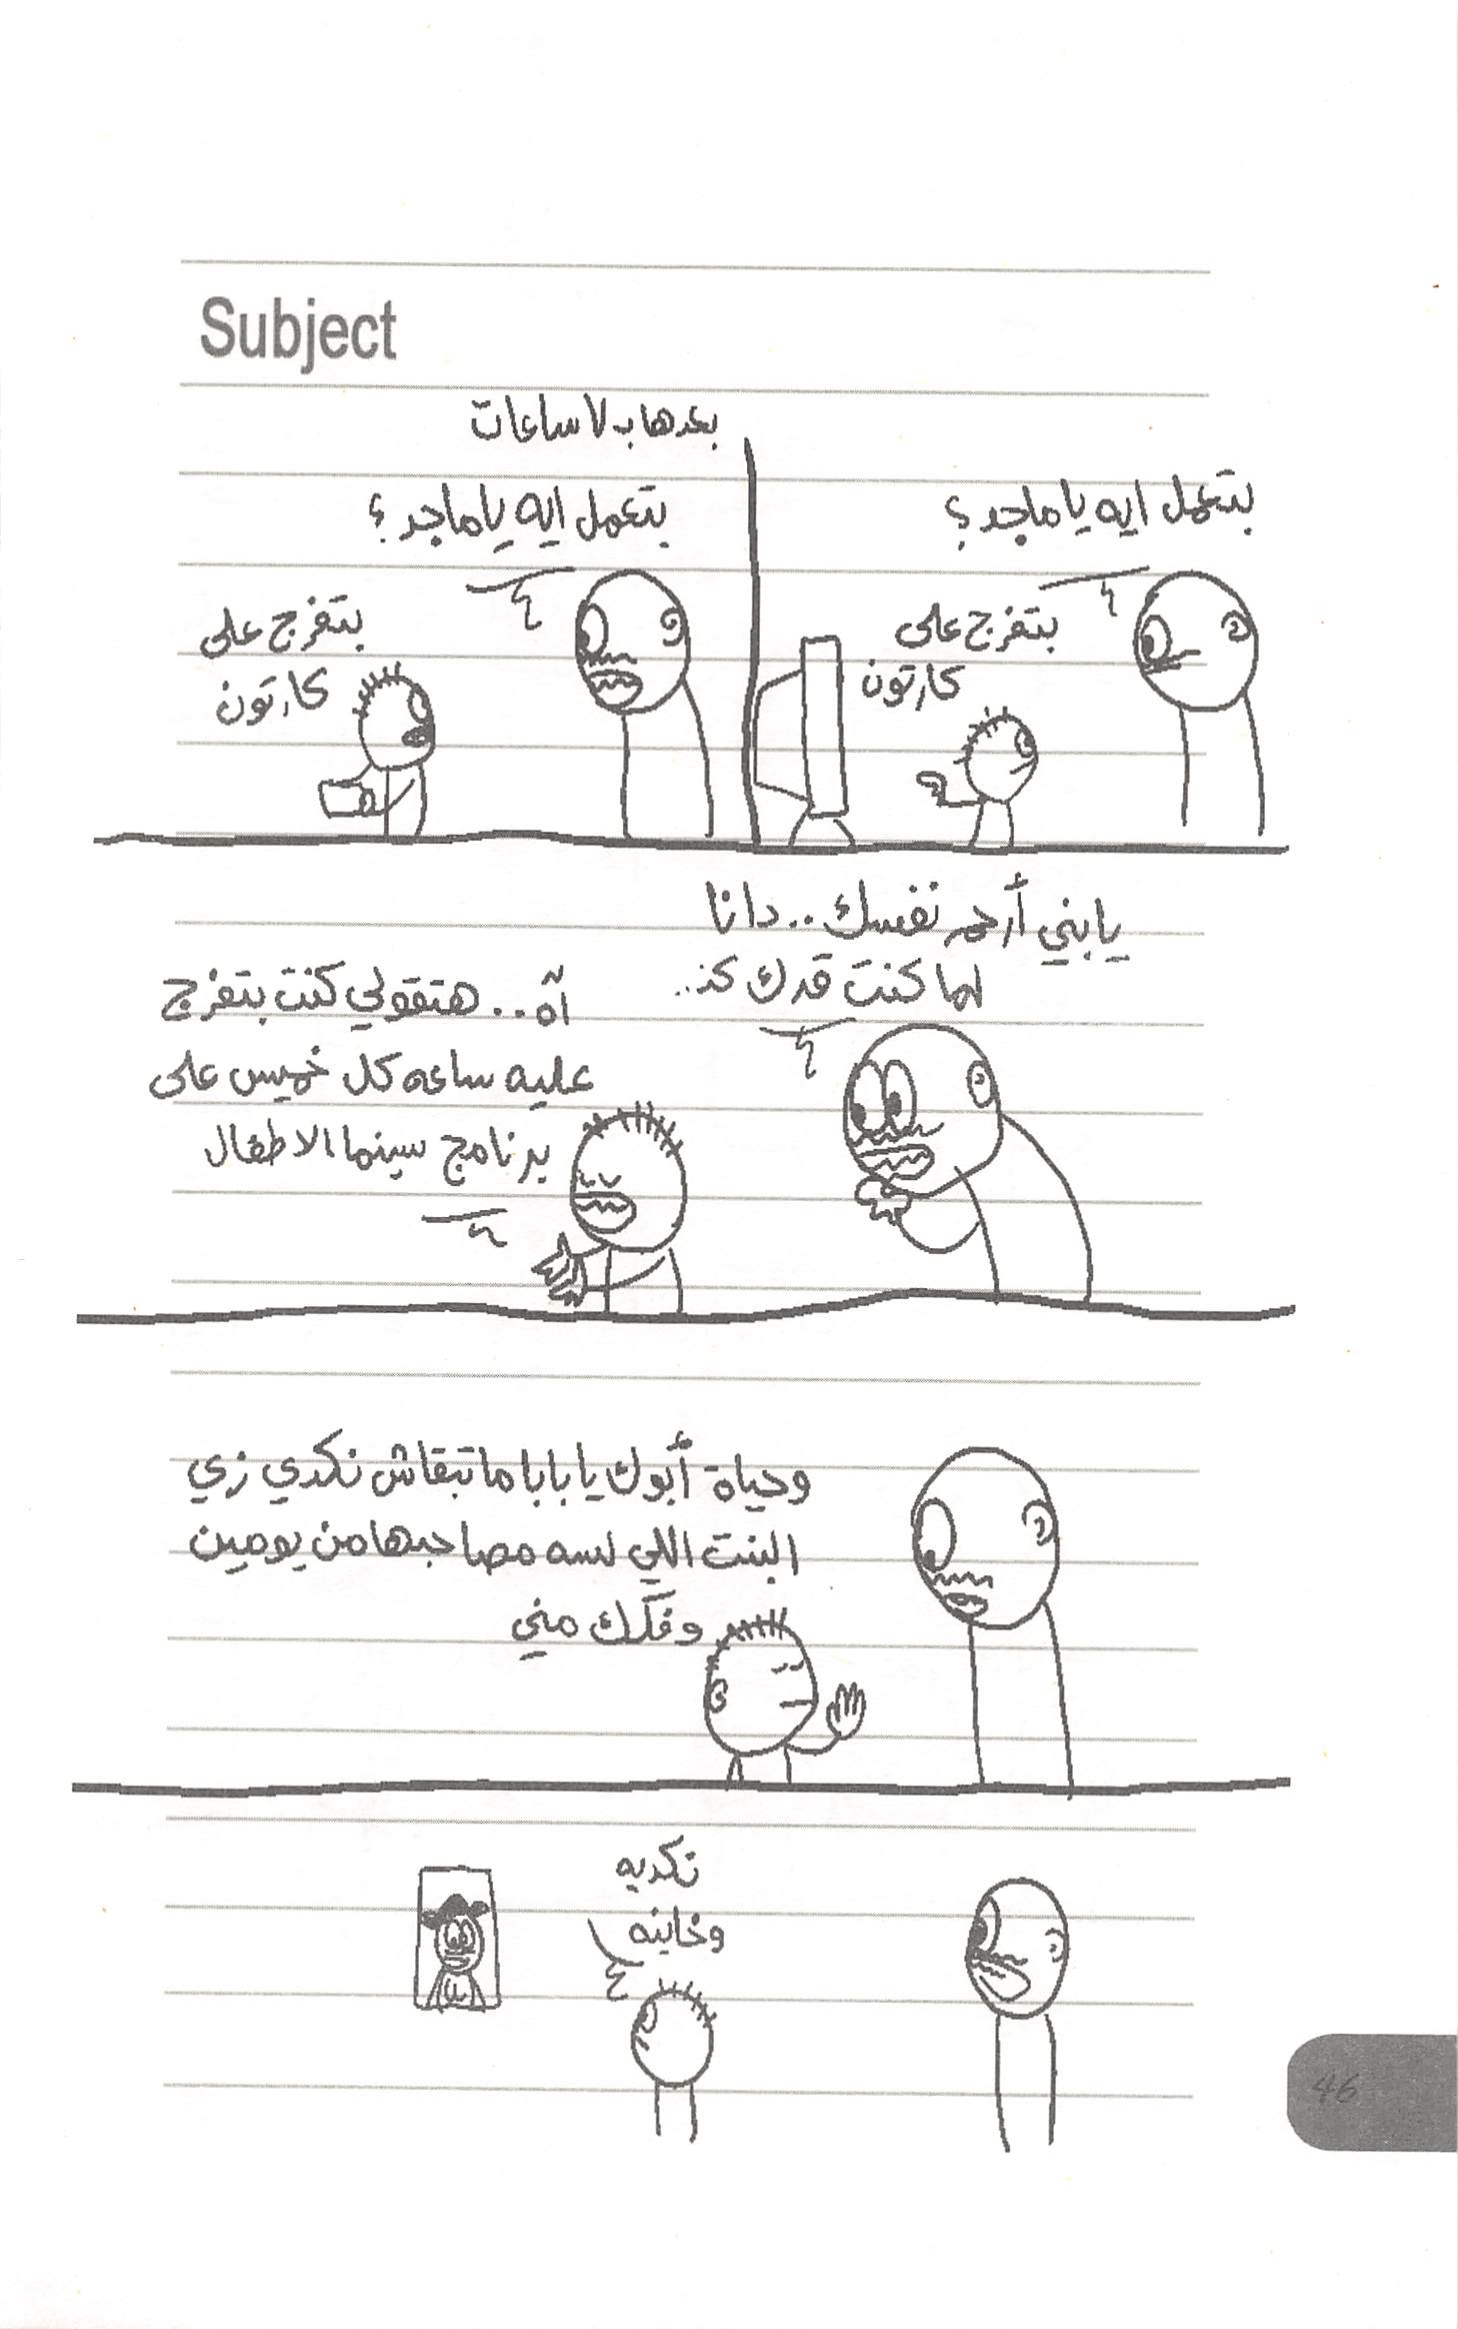 Subject
بتعمل ايه يا ماجد؟
بتفرج على
كارتون
بعدها ب ٧ ساعات
بتعمل ايه يا ماجد؟
بتفرج على
كارتون
يابني أرحم نفسك.. دانا
لما كنت قدك كنـ..
آه.. هتقولي كنت بتفرج
عليه ساعه كل خميس على
برنامج سينما الاطفال
وحياة أبوك يا بابا ما تبقاش نكدي زي
البنت اللي لسه مصاحبها من يومين
وفكك مني
نكديه
وخاينه
46